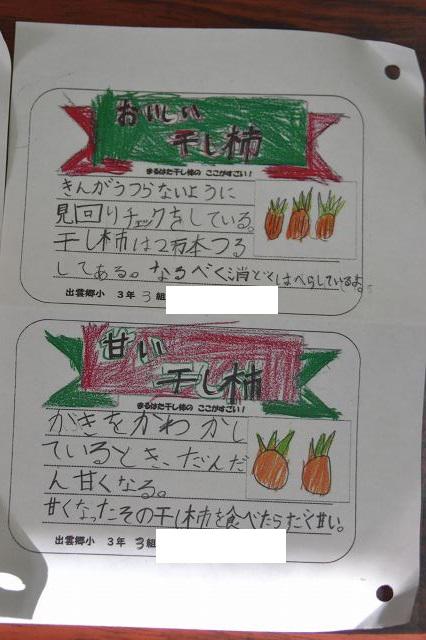 おいしい
干し柿
まるはた干し柿の ここがすごい!
きんがうつらないように
見回りチェックをしている。
干し柿は2万本つる
してある。なるべく消どくはへらしているよ。
出雲郷小 3年 3組
甘い
干し柿
まるはた干し柿の ここがすごい!
かきをかわかし
ているとき、だんだ
ん甘くなる。
甘くなったその干し柿を食べたら
甘い。
出雲郷小 3年 3組